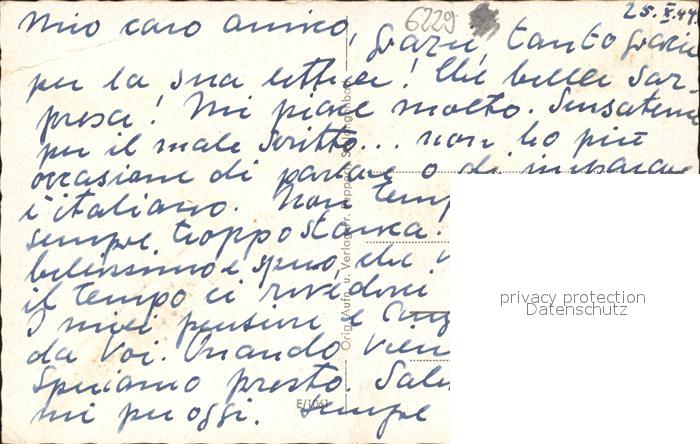 25.X.44.
6229
Mio caro amico, grazie, tanto grazie
per la sua lettera! Che bella sor-
presa! Mi piace molto. Scusatemi
per il male scritto... non ho più
occasione di parlare o di imparare
l'italiano. Non temp
sempre troppo stanca.
bellissimo e spero, che v
il tempo ci rivedere
I miei pensieri e
da Voi. Quando vien
Speriamo presto. Salu
mi per oggi. Sempre
Orig. Aufn. u. Verlag Fr.
E/1061
privacy protection
Datenschutz